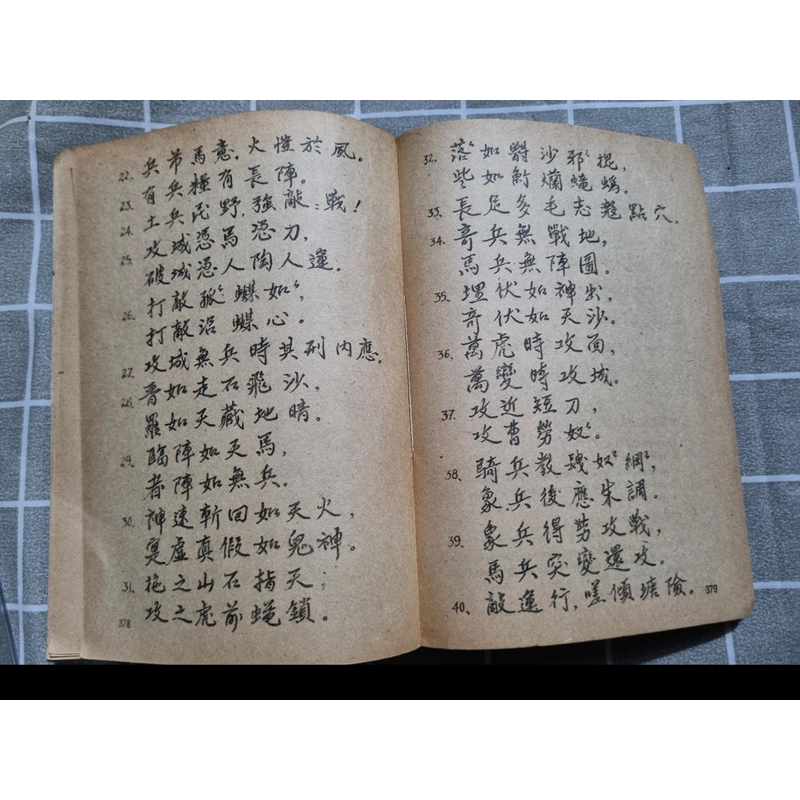 22. 兵弟馬意,火愷於風。
23. 有兵糧有長陣。
24. 土兵民野,強敵:戰!
25. 攻城憑馬憑刀,
破城憑人陶人運.
26. 打敵孤蝶如,
打敵沿蝶心。
27. 攻城無兵時其列內應.
28. 如走石飛沙,
羅如天藏地暗。
29. 臨陣如天馬,
者陣如無兵。
30. 神速斬回如天火,
寔虛真假如鬼神。
31. 拖之山石指天;
攻之虎前蠅鎖。
378
32. 落如爵沙邪掍,
些如魛爛蜿
33. 長足多毛志點穴.
34. 奇兵無戰地,
馬兵無陣圖。
35. 埋伏如神出,
奇伏如天沙。
36. 萬虎時攻面,
萬變時攻城。
37. 攻近短刀,
攻曹勞奴。
38. 騎兵教奴網,
象兵後應朱調。
39. 象兵得勞攻戰,
馬兵突變還攻.
40. 敵運行,嗟傾塘險。
379